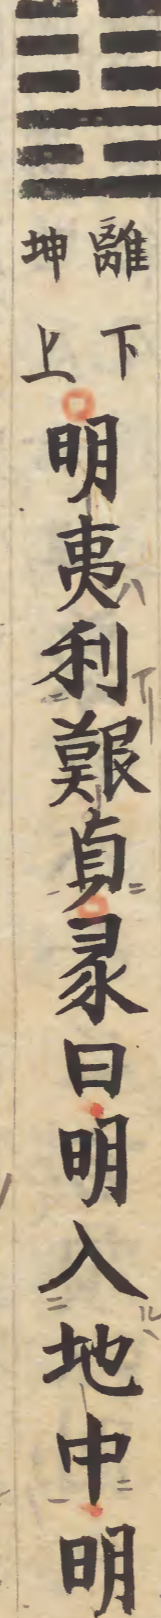 離下
坤上
明夷利艱貞彖曰明入地中明